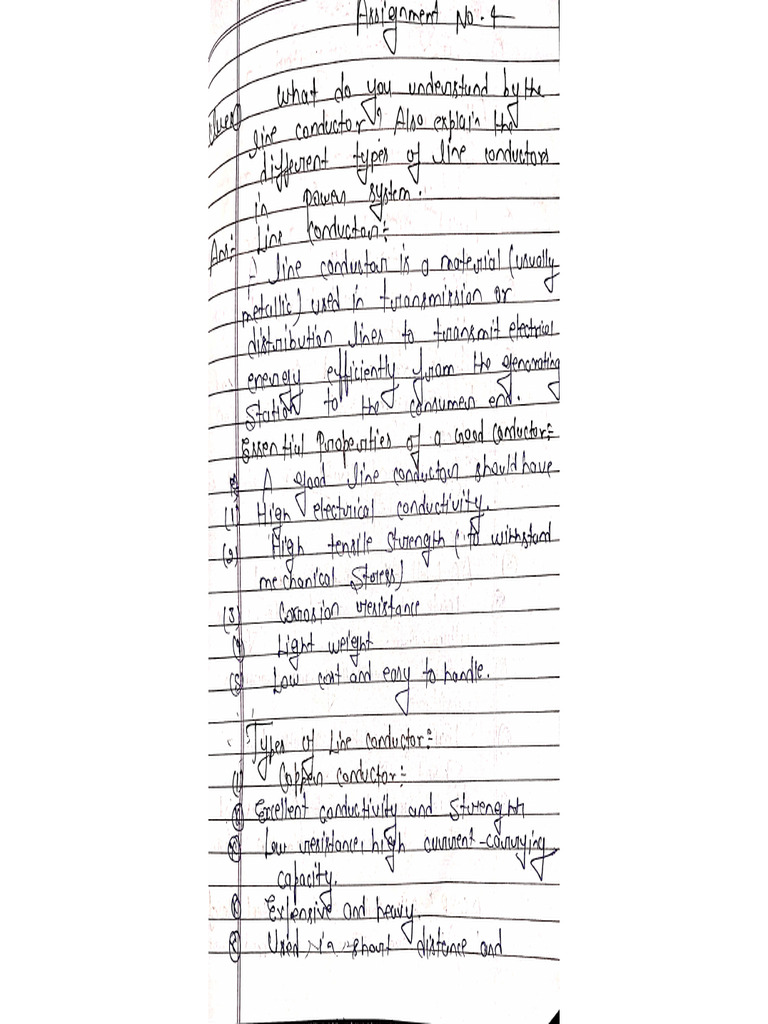 Assignment No. 4
Ques what do you understand by the
line conductor? Also explain the
different types of line conductors
in power system.
Ans:- Line Conductor:-
:-) line conductor is a material (usually
metallic) used in transmission or
distribution lines to transmit electrical
energy efficiently from the generating
Station to the consumer end.
Essential Properties of a Good Conductor:-
A good line conductor should have
(1) High electrical conductivity.
(2) High tensile strength (to withstand
mechanical Stress)
(3) Corrosion resistance
Light weight
(5) Low cost and easy to handle.
Types of Line conductor:-
(1) Copper conductor:-
Excellent conductivity and Strength
Low resistance, high current-carrying
capacity.
Expensive and heavy.
Used in short distance and